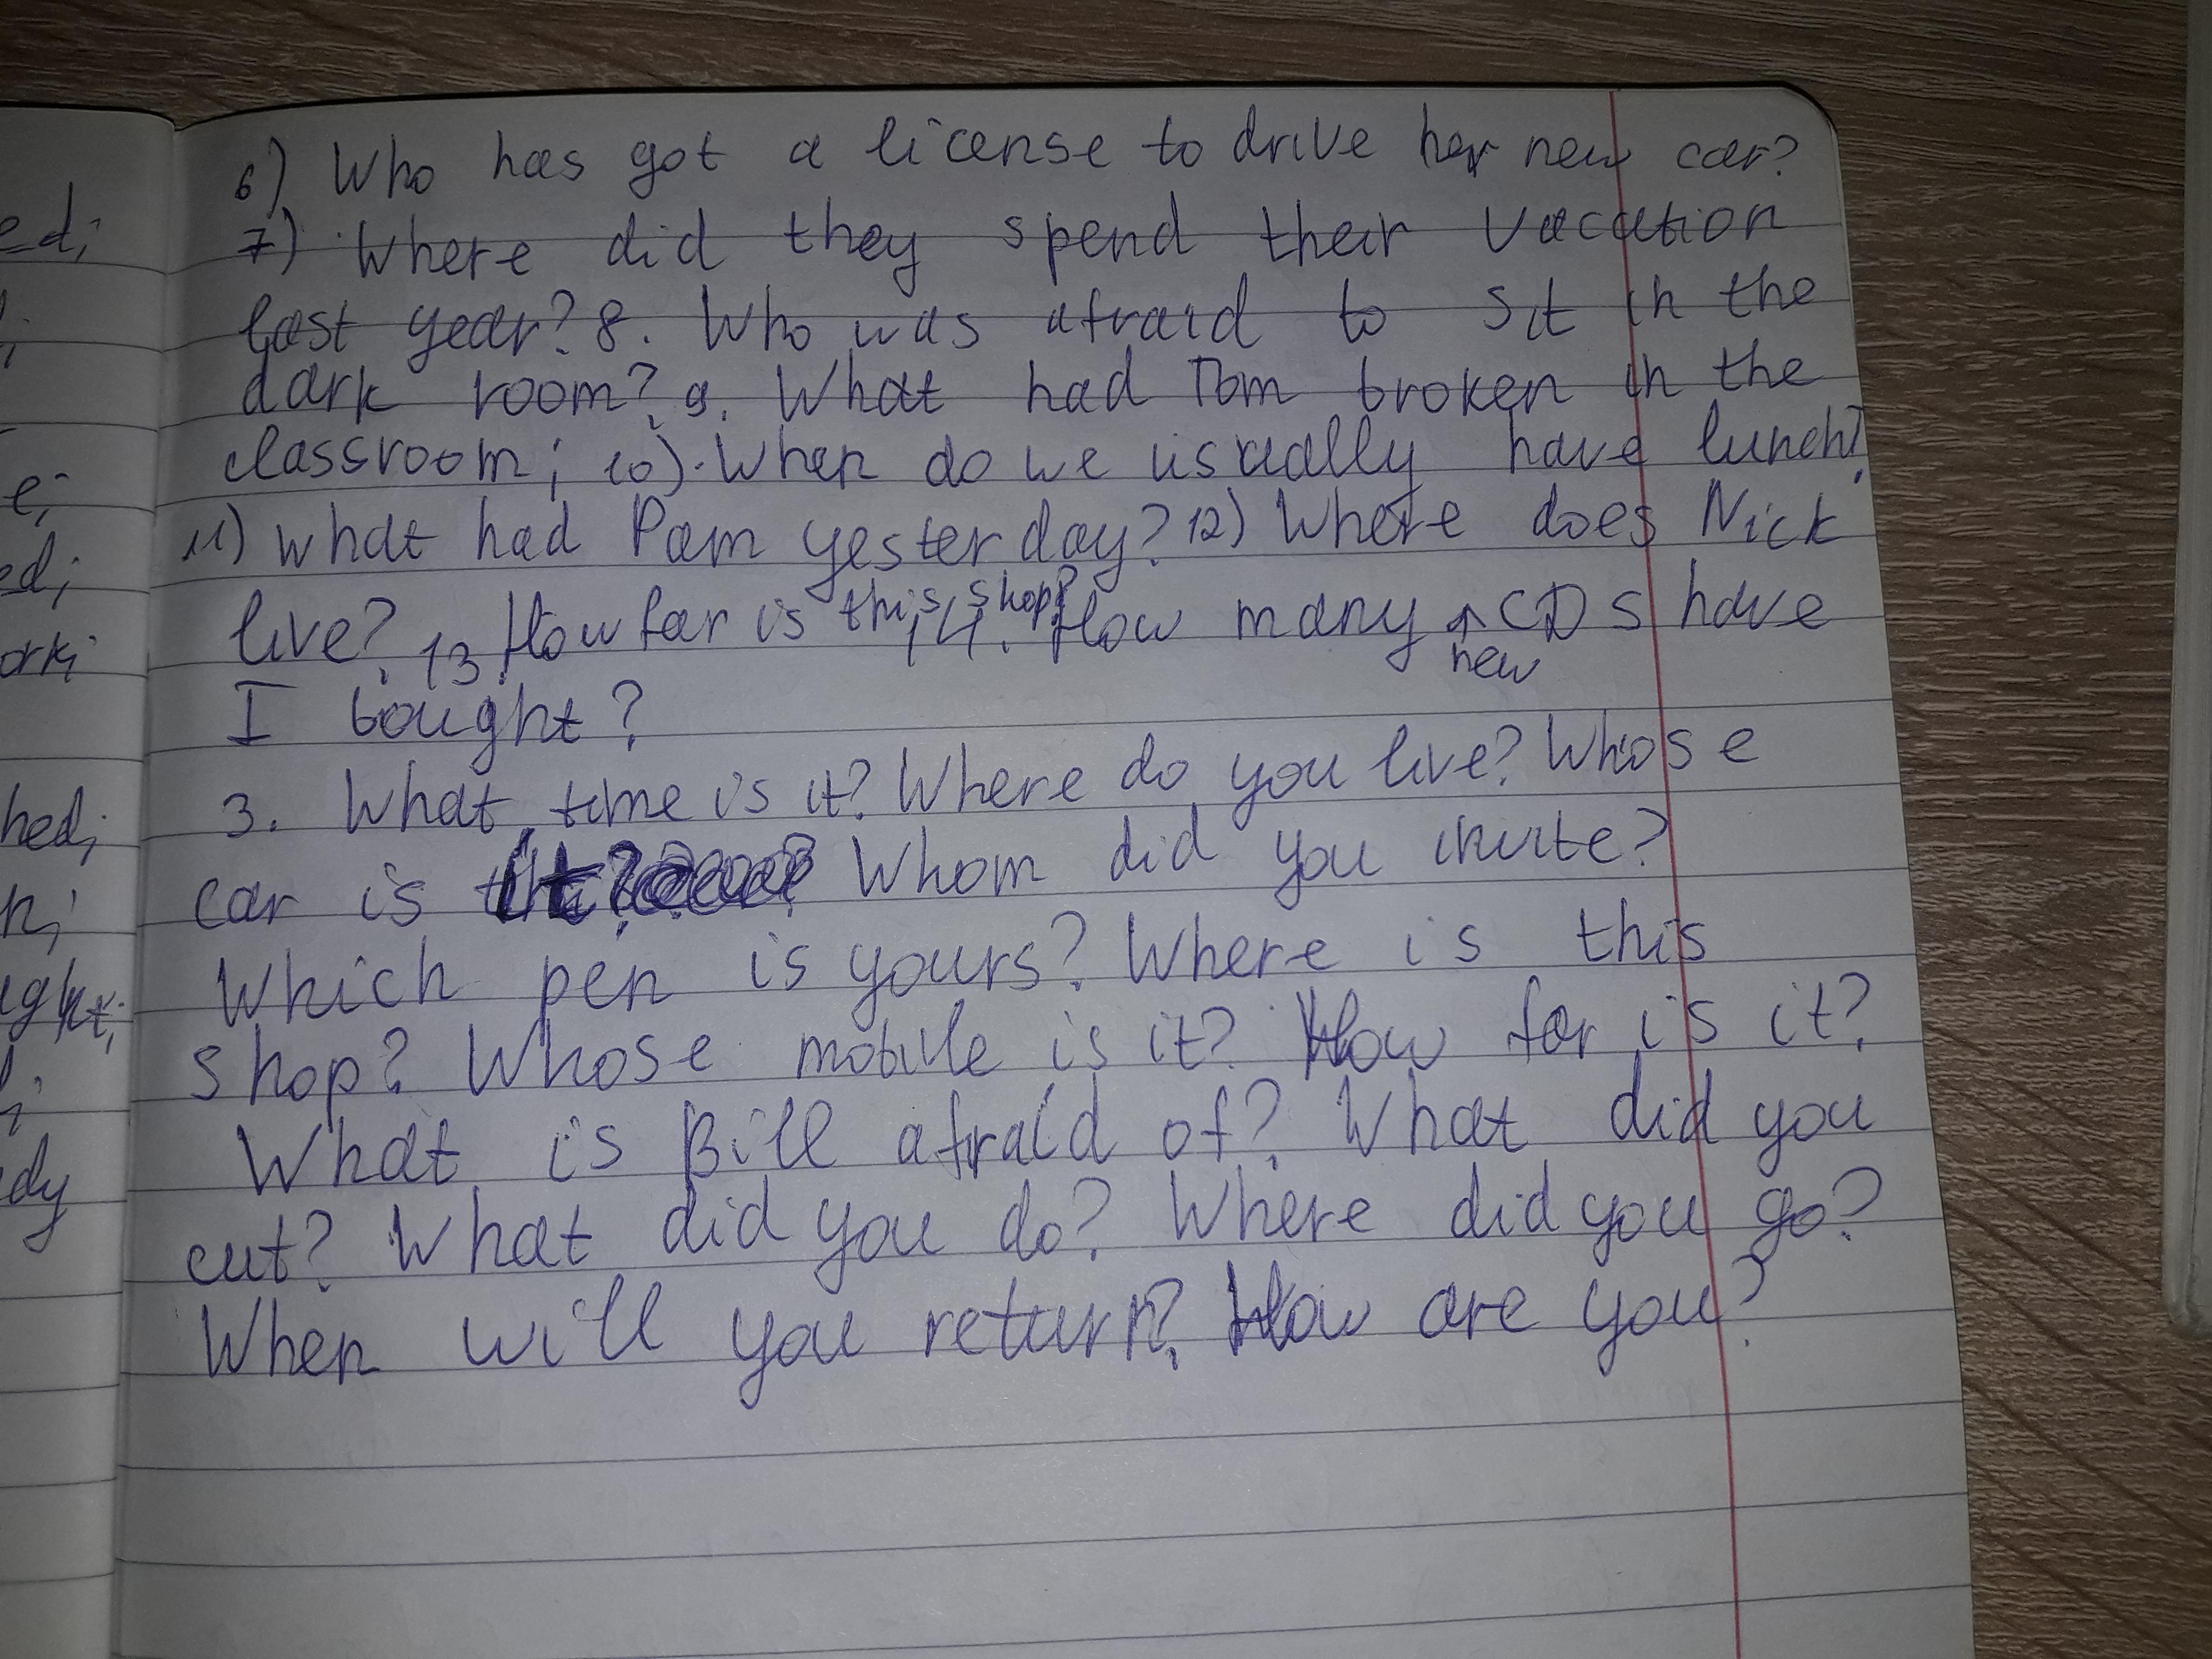 6) Who has got a license to drive her new car?
7) Where did they spend their vacation
last year? 8. Who was afraid to sit in the
dark room? 9. What had Tom broken in the
classroom; 10). When do we usually have lunch?
11) What had Pam yesterday? 12) Where does Nick
live? 13. How far is this shop? 14. How many new CDs have
I bought?
3. What time is it? Where do you live? Whose
car is it? Whom did you invite?
Which pen is yours? Where is this
shop? Whose mobile is it? How far is it?
What is Bill afraid of? What did you
cut? What did you do? Where did you go?
When will you return? How are you?
ed;
e;
ed;
ork;
hed;
n;
ught;
dy